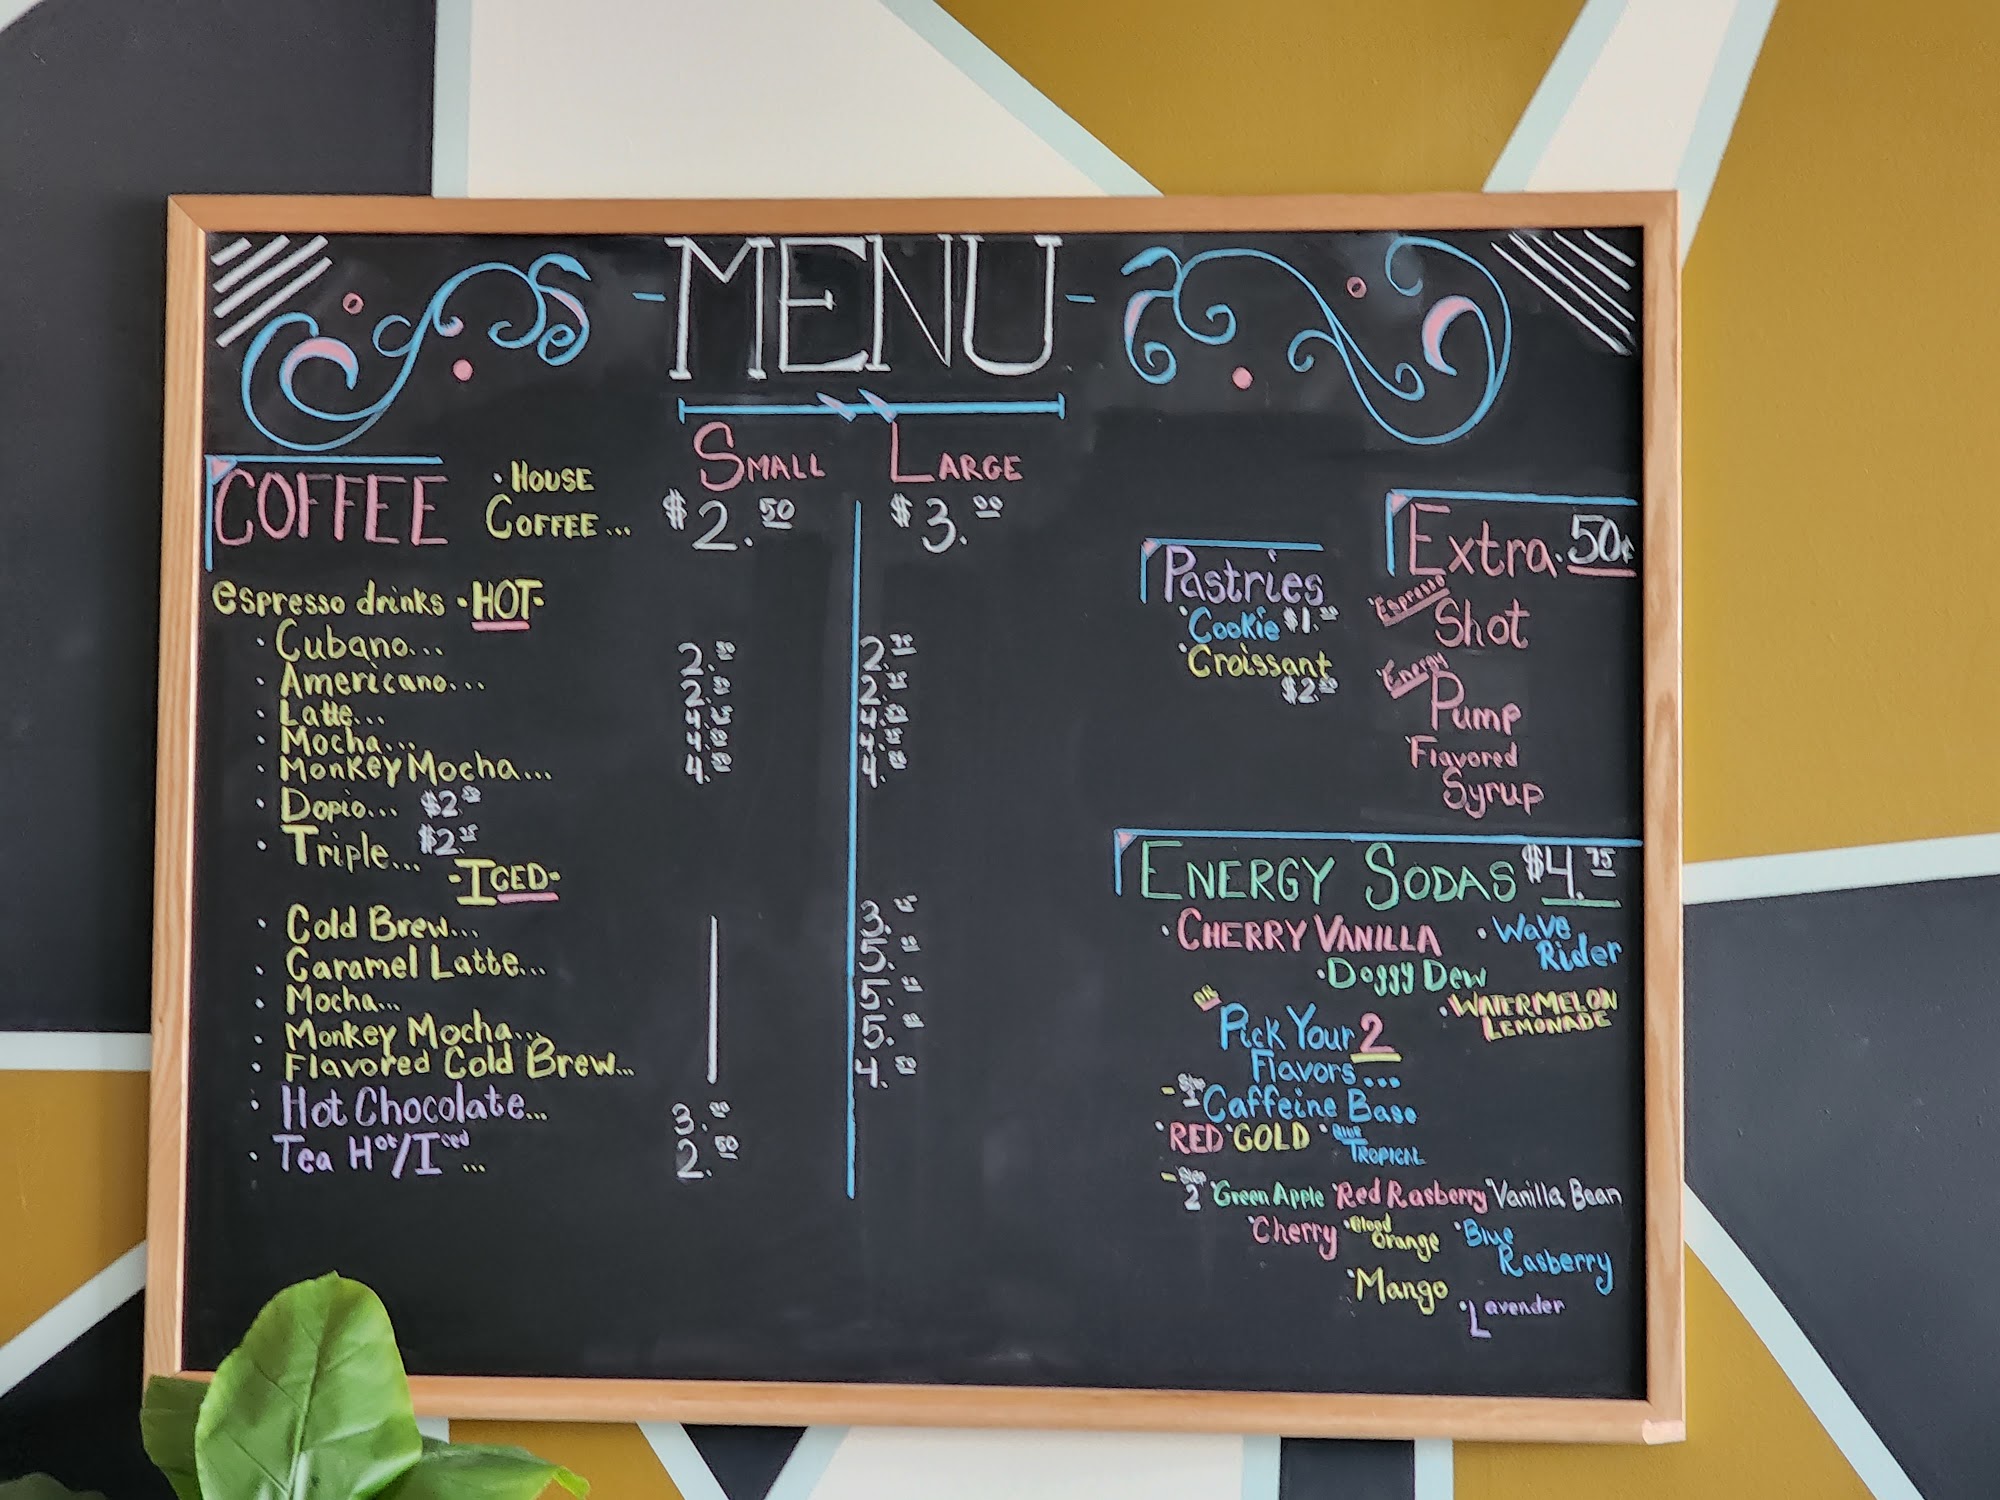 - MENU -
SMALL LARGE
COFFEE
· HOUSE
COFFEE... $2.50 $3.00
espresso drinks · HOT ·
· Cubano... 2.50 2.75
· Americano... 2.50 2.75
· Latte... 4. 4.
· Mocha... 4. 4.
· Monkey Mocha... 4. 4.
· Dopio... $2.
· Triple... $2.
- ICED -
· Cold Brew... 3.
· Caramel Latte... 5.
· Mocha... 5.
· Monkey Mocha... 5.
· Flavored Cold Brew... 4.50
· Hot Chocolate... 3.00
· Tea Hot/Iced ... 2.50
Pastries
· Cookie $1.
· Croissant
$2.
Extra · 50¢
· Espresso
Shot
· Energy
Pump
· Flavored
Syrup
ENERGY SODAS $4.75
· CHERRY VANILLA · Wave
Rider
· Doggy Dew
· WATERMELON
LEMONADE
OR
Pick Your 2
Flavors...
- Step
1 Caffeine Base
· RED · GOLD · Blue
TROPICAL
- Step
2 · Green Apple · Red Rasberry · Vanilla Bean
· Cherry · Blood
Orange · Blue
Rasberry
· Mango
· Lavender